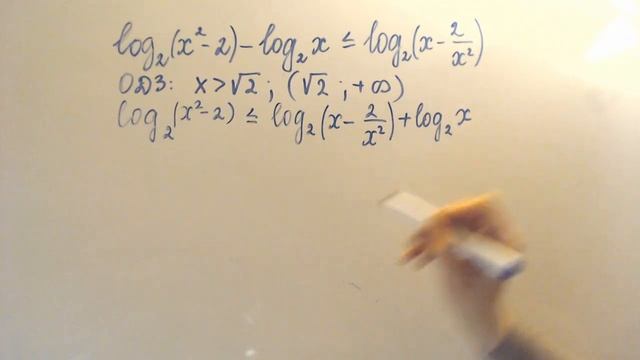 log₂(x² - 2) - log₂ x ≤ log₂(x - 2/x²)
ОДЗ: x > √2 ; (√2 ; +∞)
log₂(x² - 2) ≤ log₂(x - 2/x²) + log₂ x